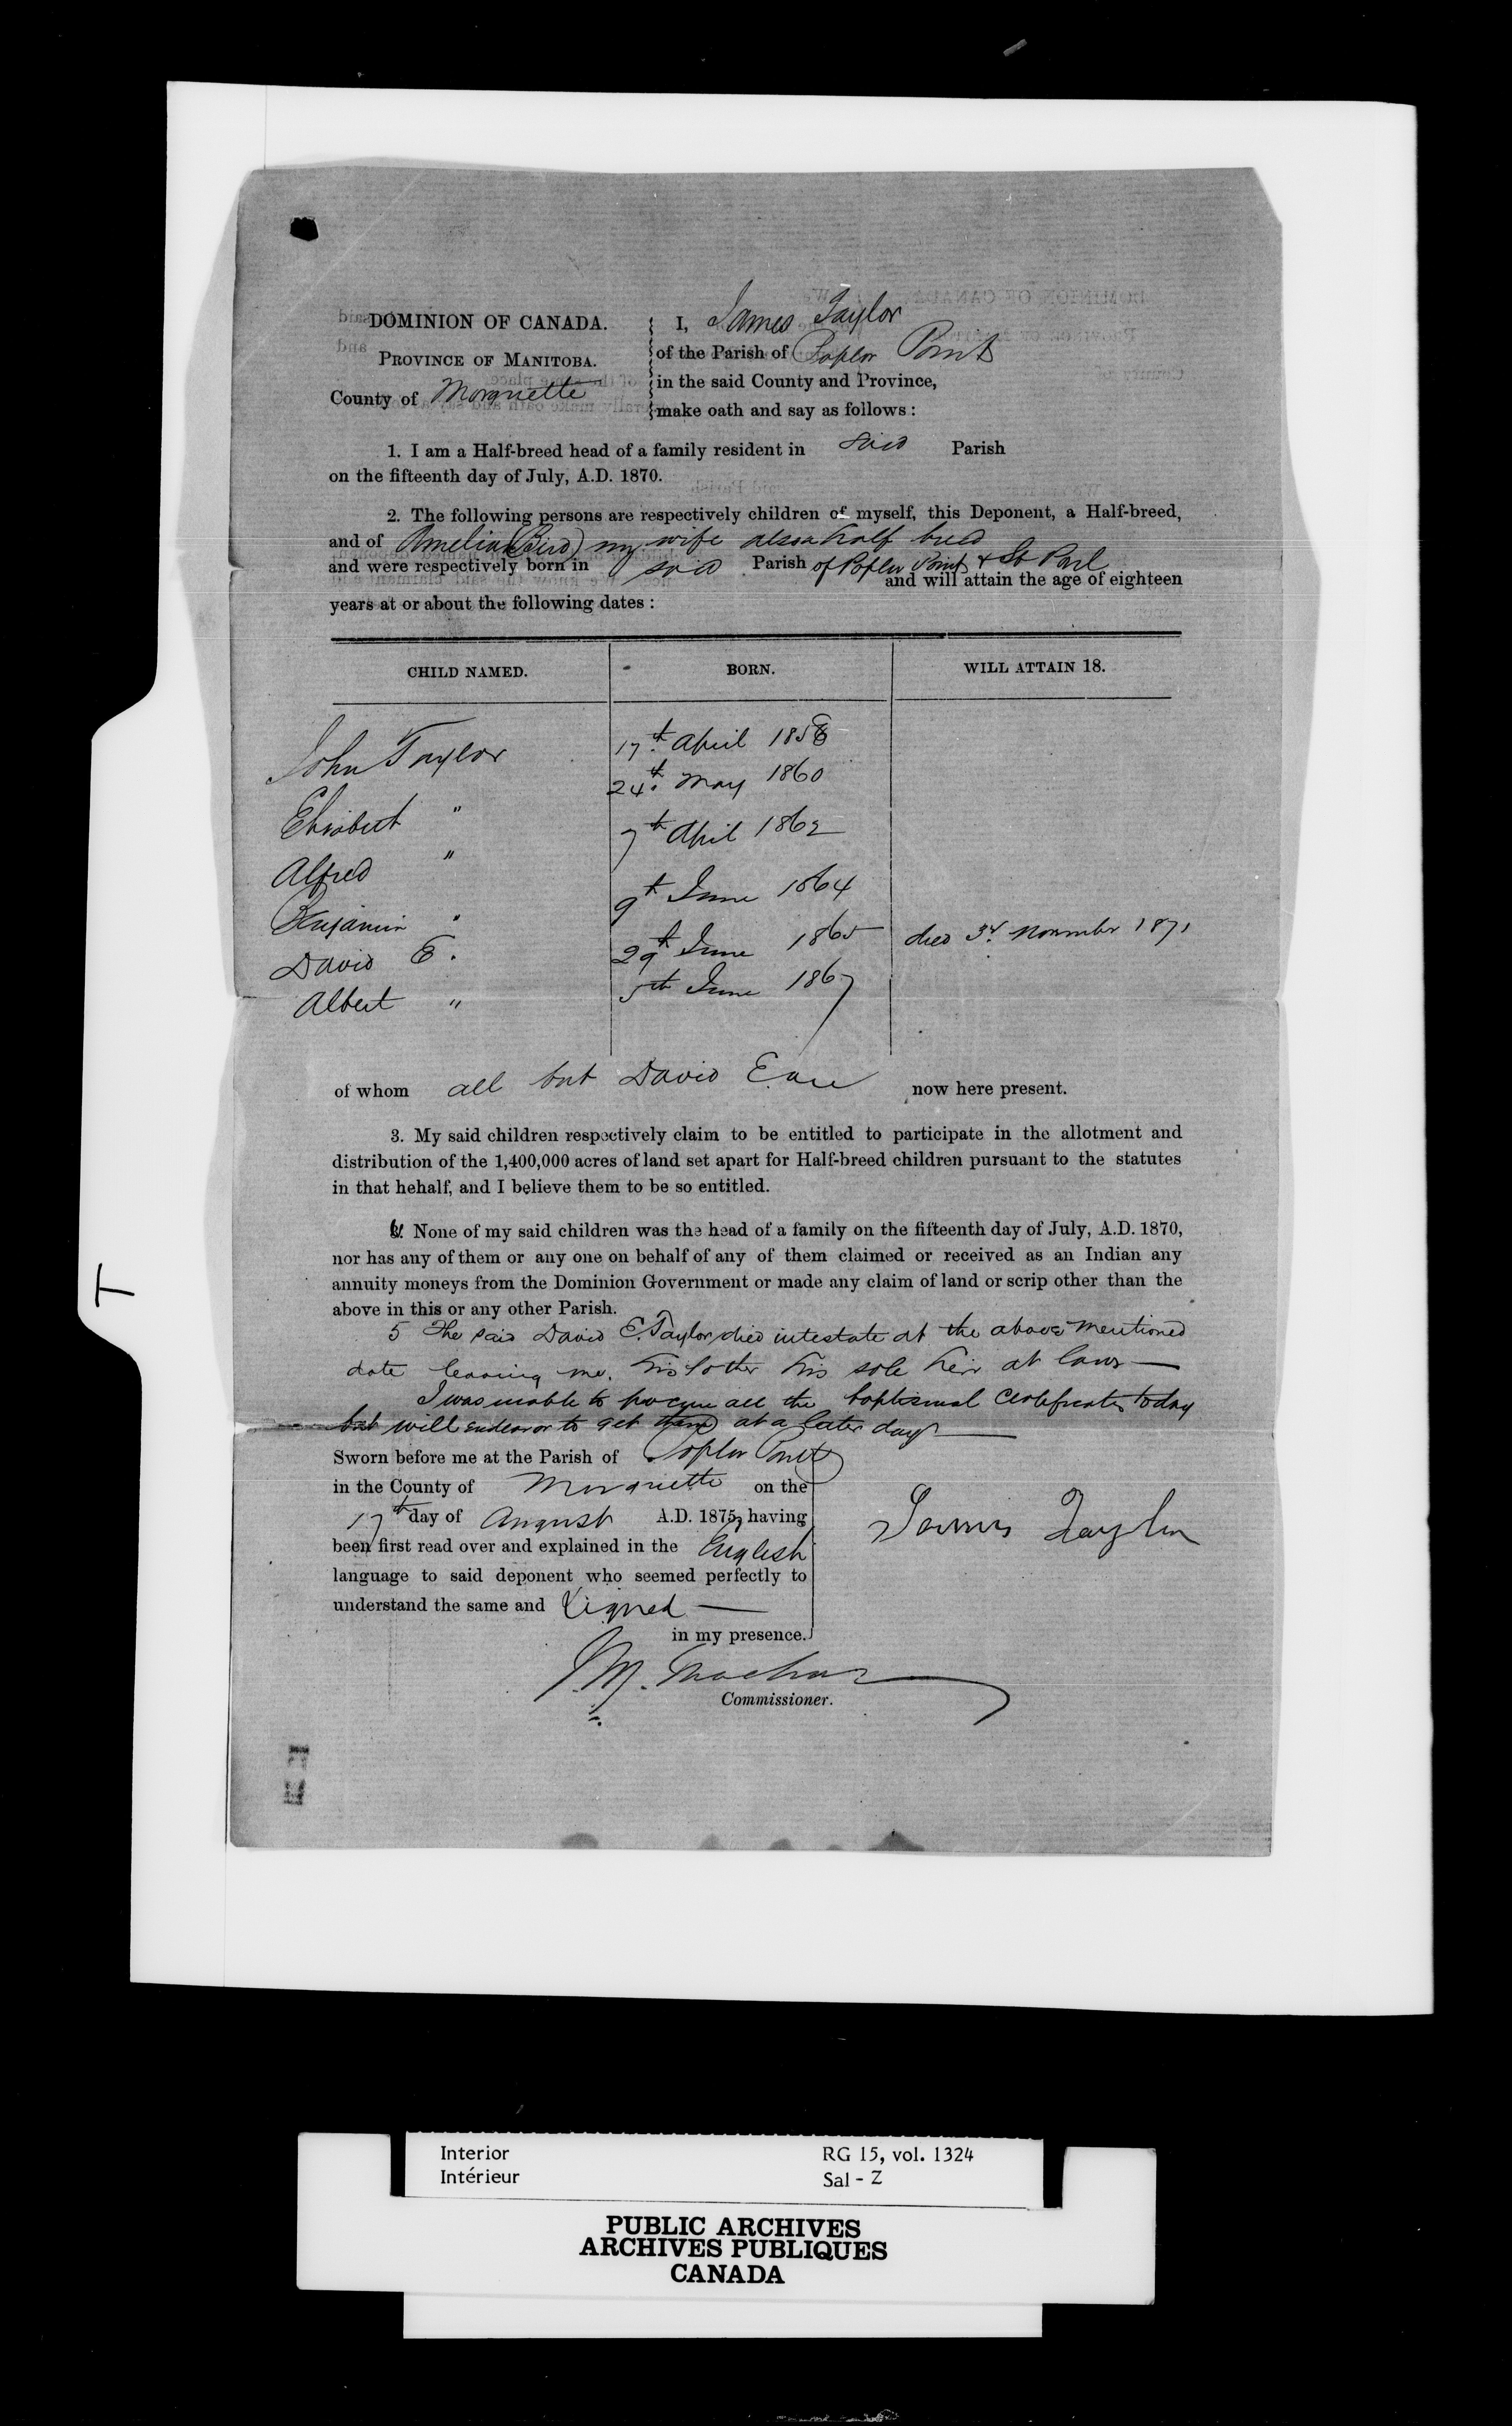 DOMINION OF CANADA.
PROVINCE OF MANITOBA.
County of Marquette
I, James Taylor
of the Parish of Poplar Point
in the said County and Province,
make oath and say as follows:
1. I am a Half-breed head of a family resident in said Parish
on the fifteenth day of July, A.D. 1870.
2. The following persons are respectively children of myself, this Deponent, a Half-breed,
and of Amelia (Bird) my wife also a half breed
and were respectively born in said Parish of Poplar Point & St Paul
and will attain the age of eighteen
years at or about the following dates:
CHILD NAMED. BORN. WILL ATTAIN 18.
John Taylor 17th April 1858
Elizabeth " 24th May 1860
Alfred " 7th April 1862
Benjamin " 9th June 1864
David E. 29th June 1865 died 3d November 1871
Albert " 5th June 1867
of whom all but David E are now here present.
3. My said children respectively claim to be entitled to participate in the allotment and
distribution of the 1,400,000 acres of land set apart for Half-breed children pursuant to the statutes
in that hehalf, and I believe them to be so entitled.
4. None of my said children was the head of a family on the fifteenth day of July, A.D. 1870,
nor has any of them or any one on behalf of any of them claimed or received as an Indian any
annuity moneys from the Dominion Government or made any claim of land or scrip other than the
above in this or any other Parish.
5 The said David E. Taylor died intestate at the above mentioned
date leaving me, his father his sole heir at law —
I was unable to procure all the baptismal certificates today
but will endeavor to get them at a later day —
Sworn before me at the Parish of Poplar Point
in the County of Marquette on the
17th day of August A.D. 1875, having
been first read over and explained in the English
language to said deponent who seemed perfectly to
understand the same and signed —
in my presence.
James Taylor
J.M. Machar
Commissioner.
T
Interior
Intérieur
RG 15, vol. 1324
Sal - Z
PUBLIC ARCHIVES
ARCHIVES PUBLIQUES
CANADA